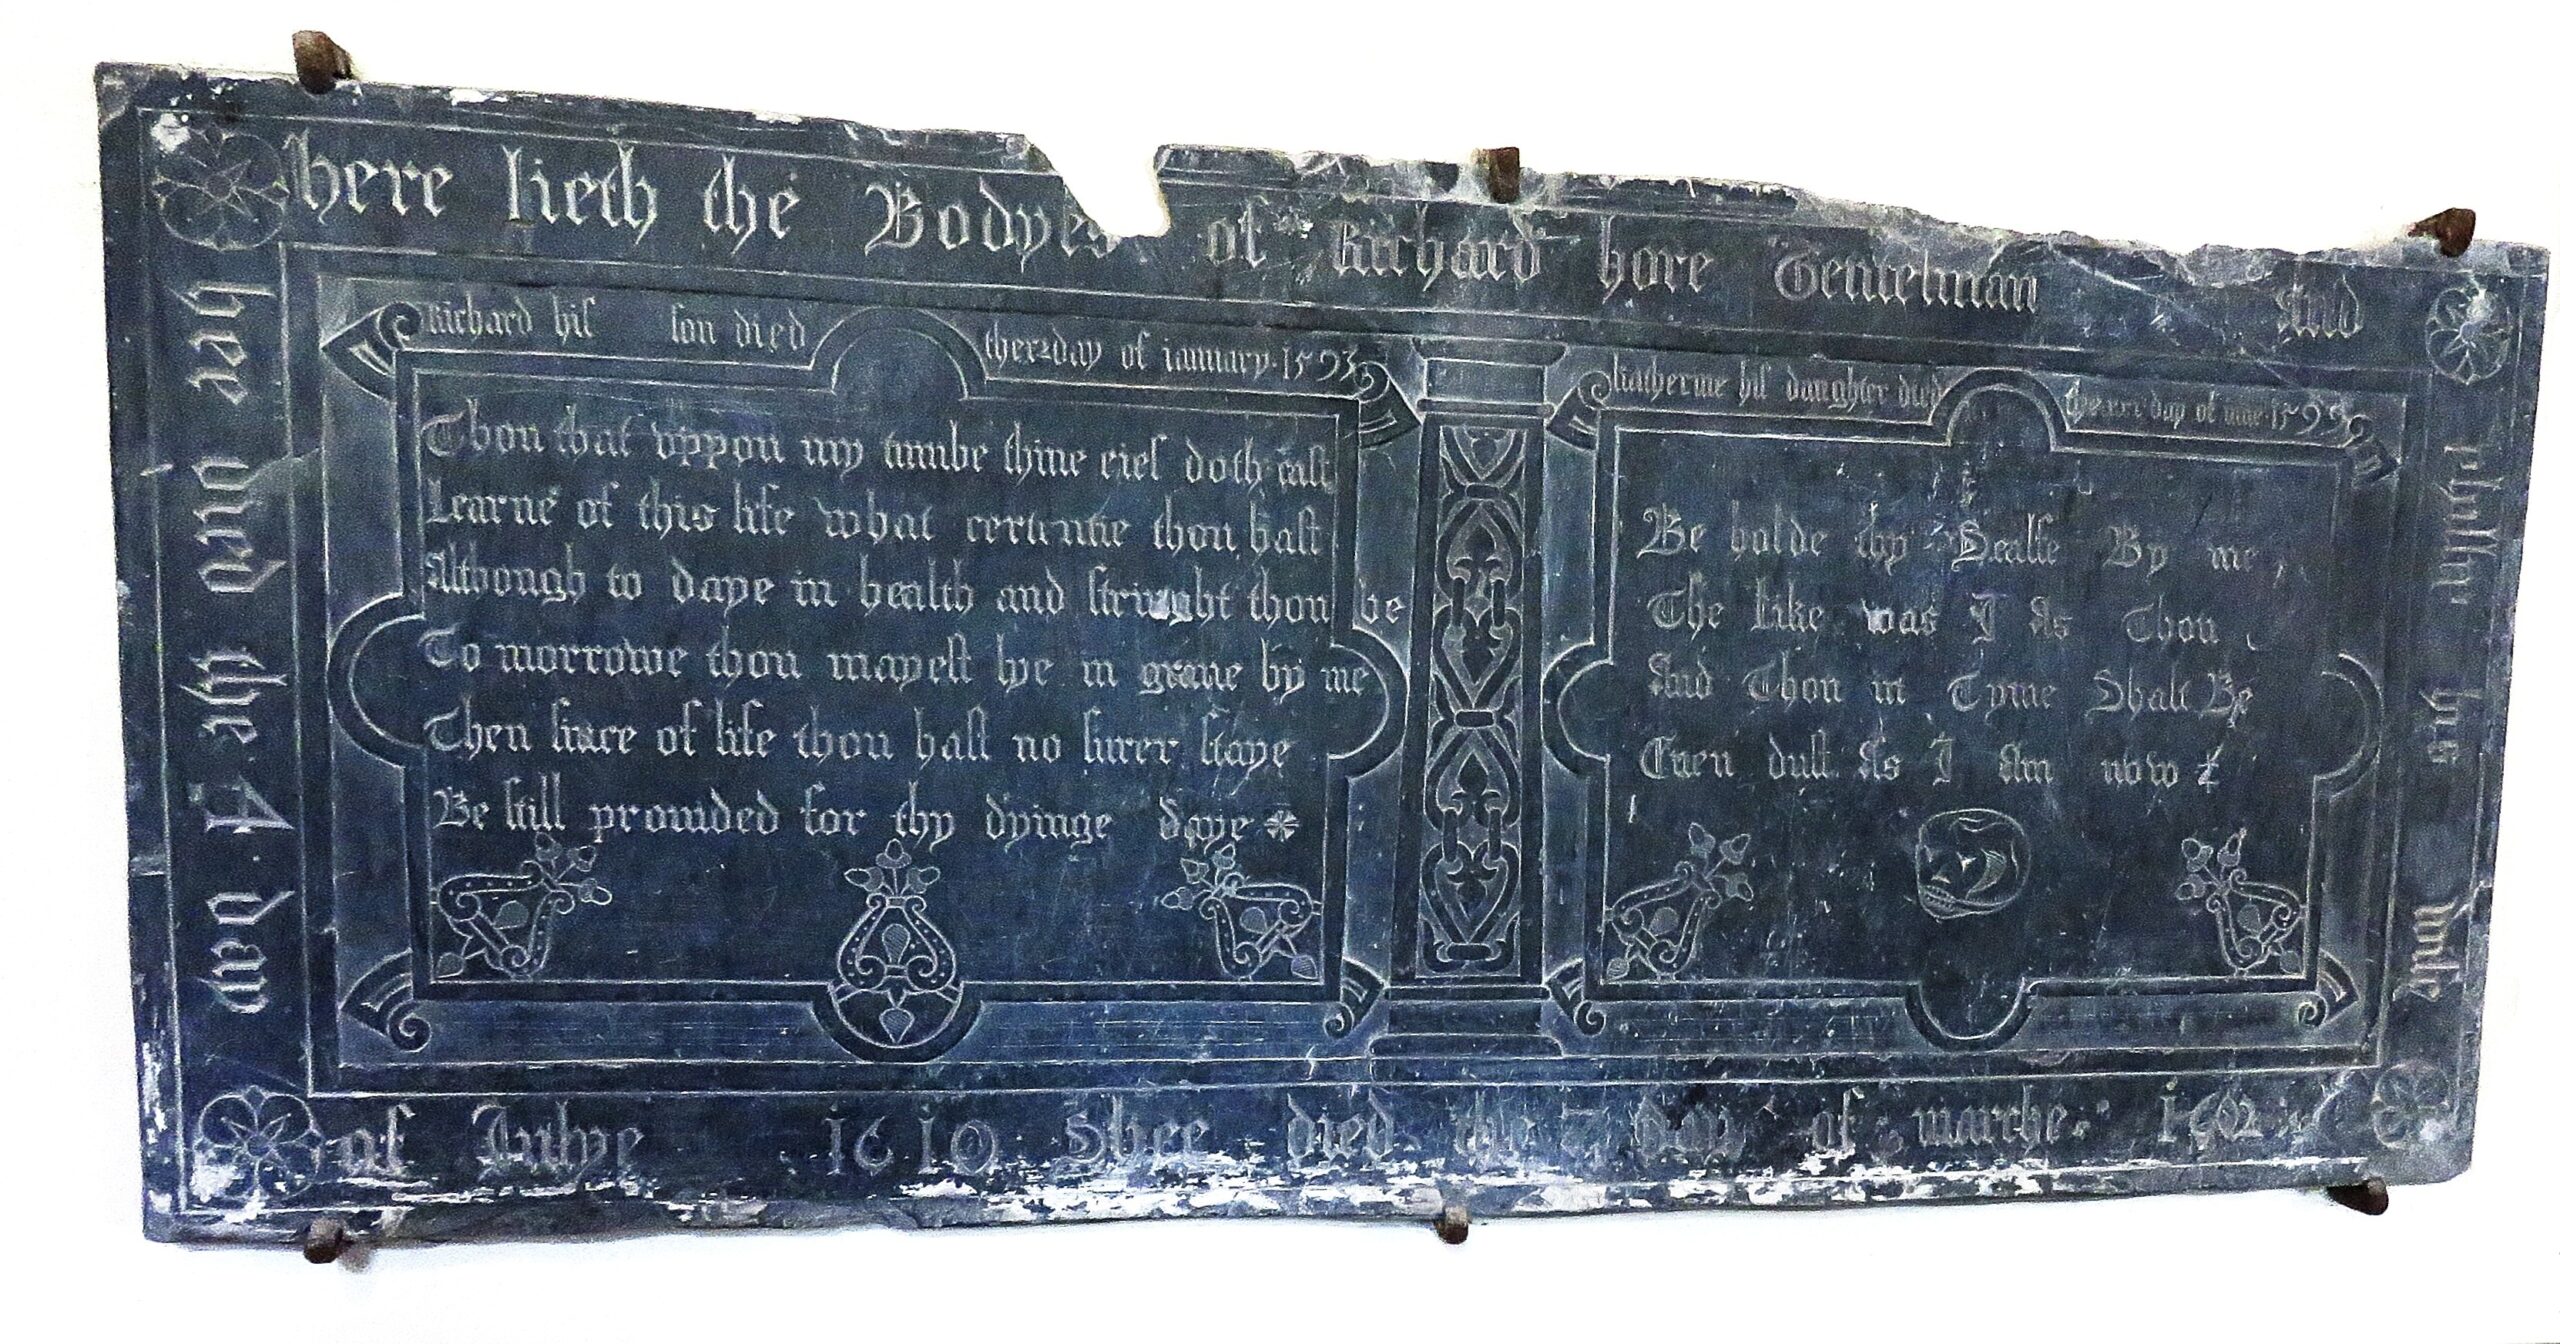 here lieth the Bodyes of Richard hore Gentelman And
Phillyp his wife
hee died the 4 day
of Iulye 1610 Shee died the 7 day of marche 1602
Richard his son died the 12 day of ianuary 1593
Thou that vppon my tumbe thine eies doth cast
Learne of this life what certintie thou hast
Although to daye in health and straught thou be
To morrowe thou mayest lye in graue by me
Then since of life thou hast no surer staye
Be still prouided for thy dyinge daye
Katherine his daughter died the day of 1595
Be holde thy Sealfe By me,
The Like was I As Thou
And Thou in Tyme Shalt Be
Euen dust As I Am now